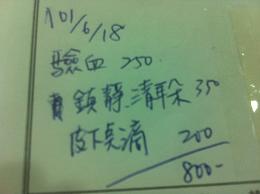 101/6/18
驗血 250.
鎮靜.清耳朵 350
皮下点滴 200
800-